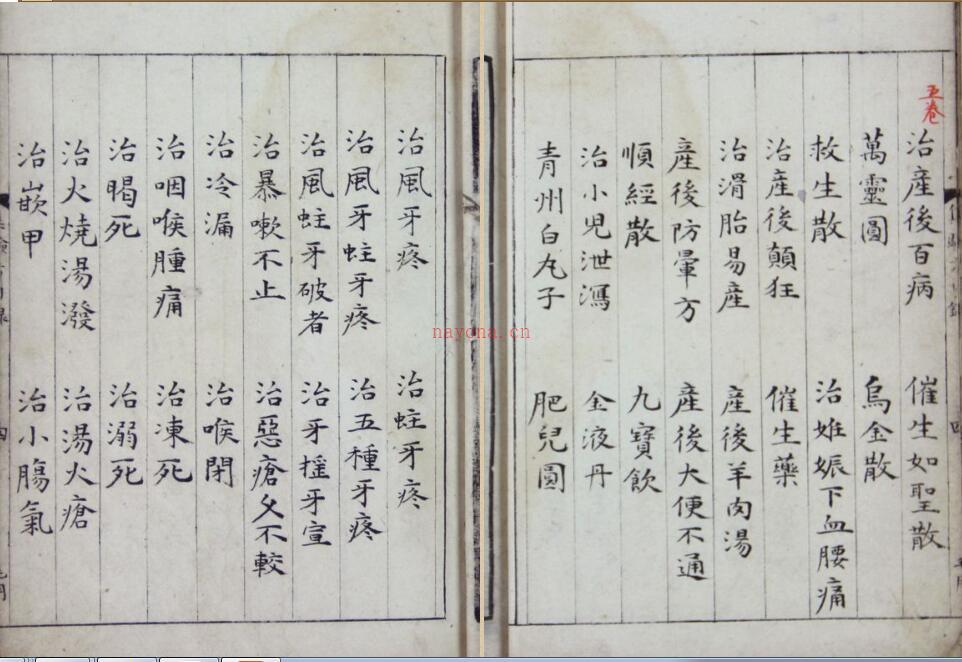 五卷
治產後百病 催生如聖散
萬靈圓 烏金散
救生散 治姙娠下血腰痛
治產後顛狂 催生藥
治滑胎易產 產後羊肉湯
產後防暈方 產後大便不通
順經散 九寶飲
治小児泄瀉 金液丹
青州白丸子 肥兒圓
治風牙疼 治蛀牙疼
治風牙蛀牙疼 治五種牙疼
治風蛀牙破者 治牙揺牙宣
治暴嗽不止 治惡瘡久不較
治冷漏 治喉閉
治咽喉腫痛 治凍死
治暍死 治溺死
治火燒湯潑 治湯火瘡
治嵌甲 治小腸氣
四
nayona.cn